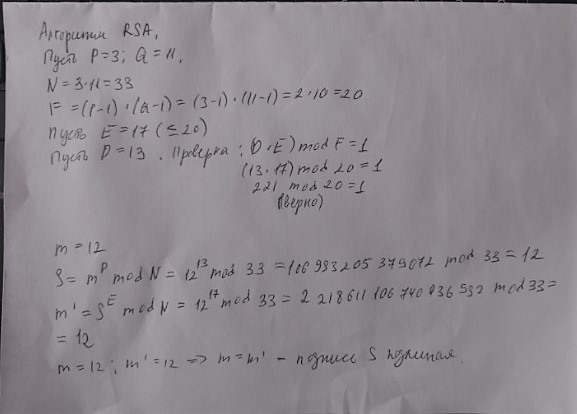 Алгоритм RSA.
Пусть P=3; Q=11.
N=3·11=33
F=(P-1)·(Q-1)=(3-1)·(11-1)=2·10=20
Пусть E=17(≤20)
Пусть D=13. Проверка: (D·E) mod F=1
(13·17) mod 20=1
221 mod 20=1
(верно)
m=12
S=m^D mod N=12^13 mod 33=106 993 205 379 072 mod 33=12
m'=S^E mod N=12^17 mod 33=2 218 611 106 740 436 992 mod 33=
=12
m=12; m'=12 => m=m' - подпись S подлинная.